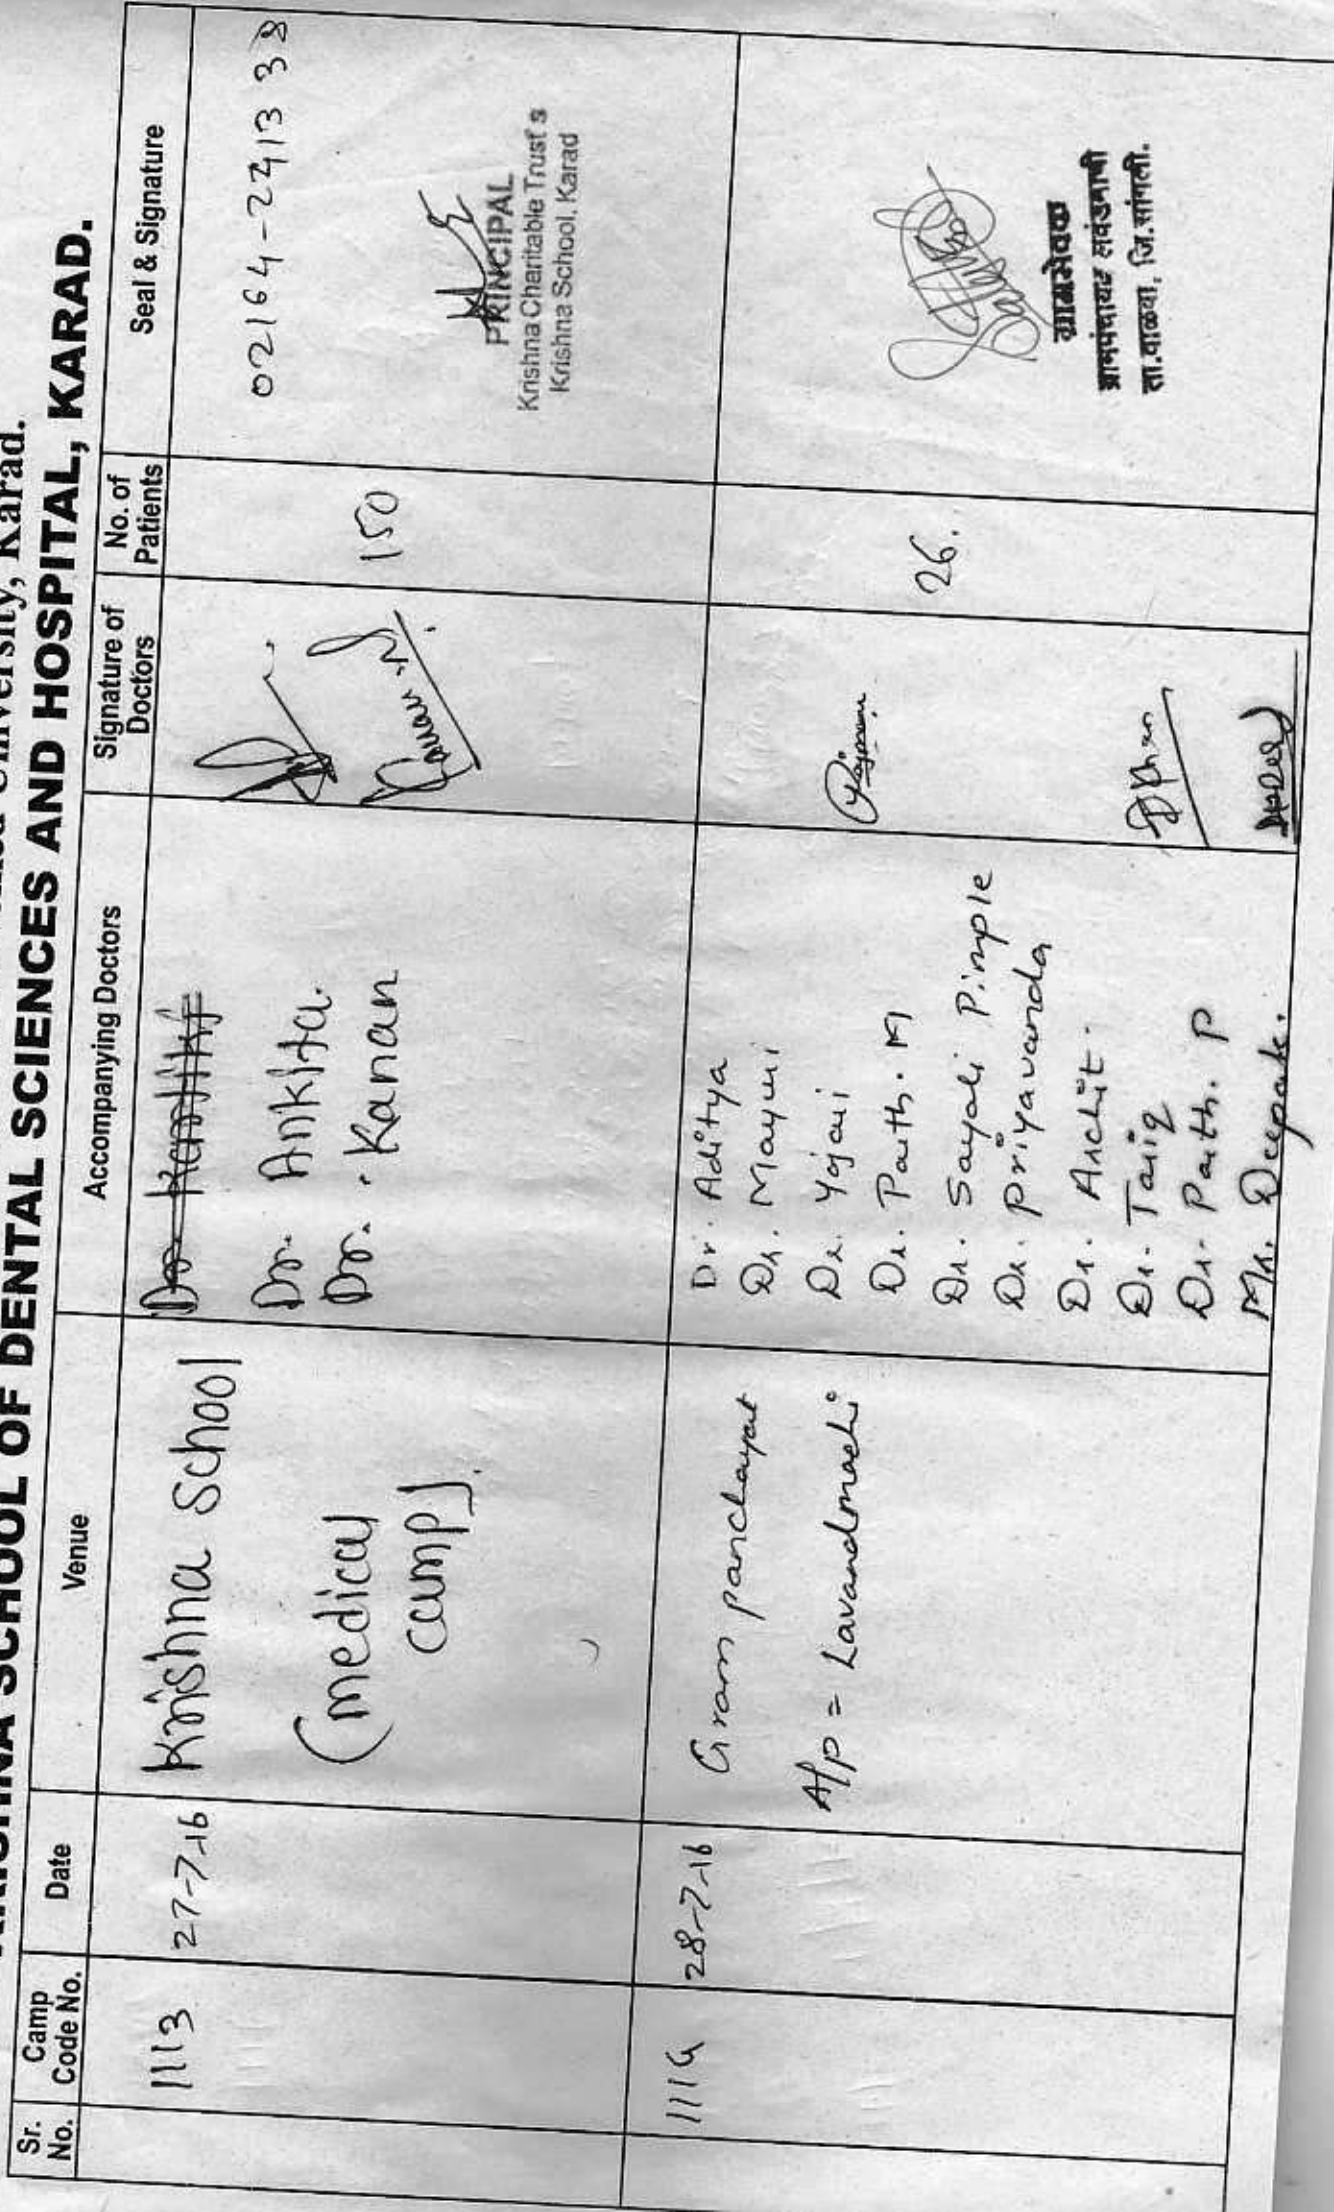 University, Karad.
SCHOOL OF DENTAL SCIENCES AND HOSPITAL, KARAD.
Sr. No.
Camp Code No.
Date
Venue
Accompanying Doctors
Signature of Doctors
No. of Patients
Seal & Signature
1113
27-7-16
Krishna School
(medical
camp).
Dr. Ankita.
Dr. Kanan
150
02164-241338
PRINCIPAL
Krishna Charitable Trust's
Krishna School, Karad
28-7-16
Gram panchayat
A/p = Lavandmachi
Dr. Aditya
Dr. Mayuri
Dr. Yojani
Dr. Parth. M
Dr. Sayali Pimple
Dr. Priyavanda
Dr. Archit.
Dr. Tariq
Dr. Parth. P
Mr. Deepak.
26.
ग्रामसेवक
ग्रामपंचायत लवंडमाची
ता.वाळवा, जि.सांगली.